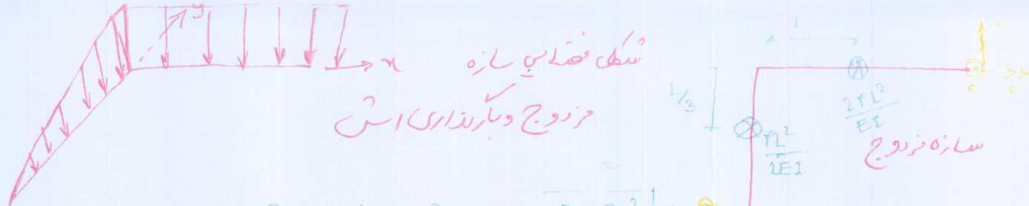 y
شکل فضایی سازه
x
مزدوج و بارگذاری اش
L
L/3
2PL²
EI
PL²
2EI
سازه مزدوج